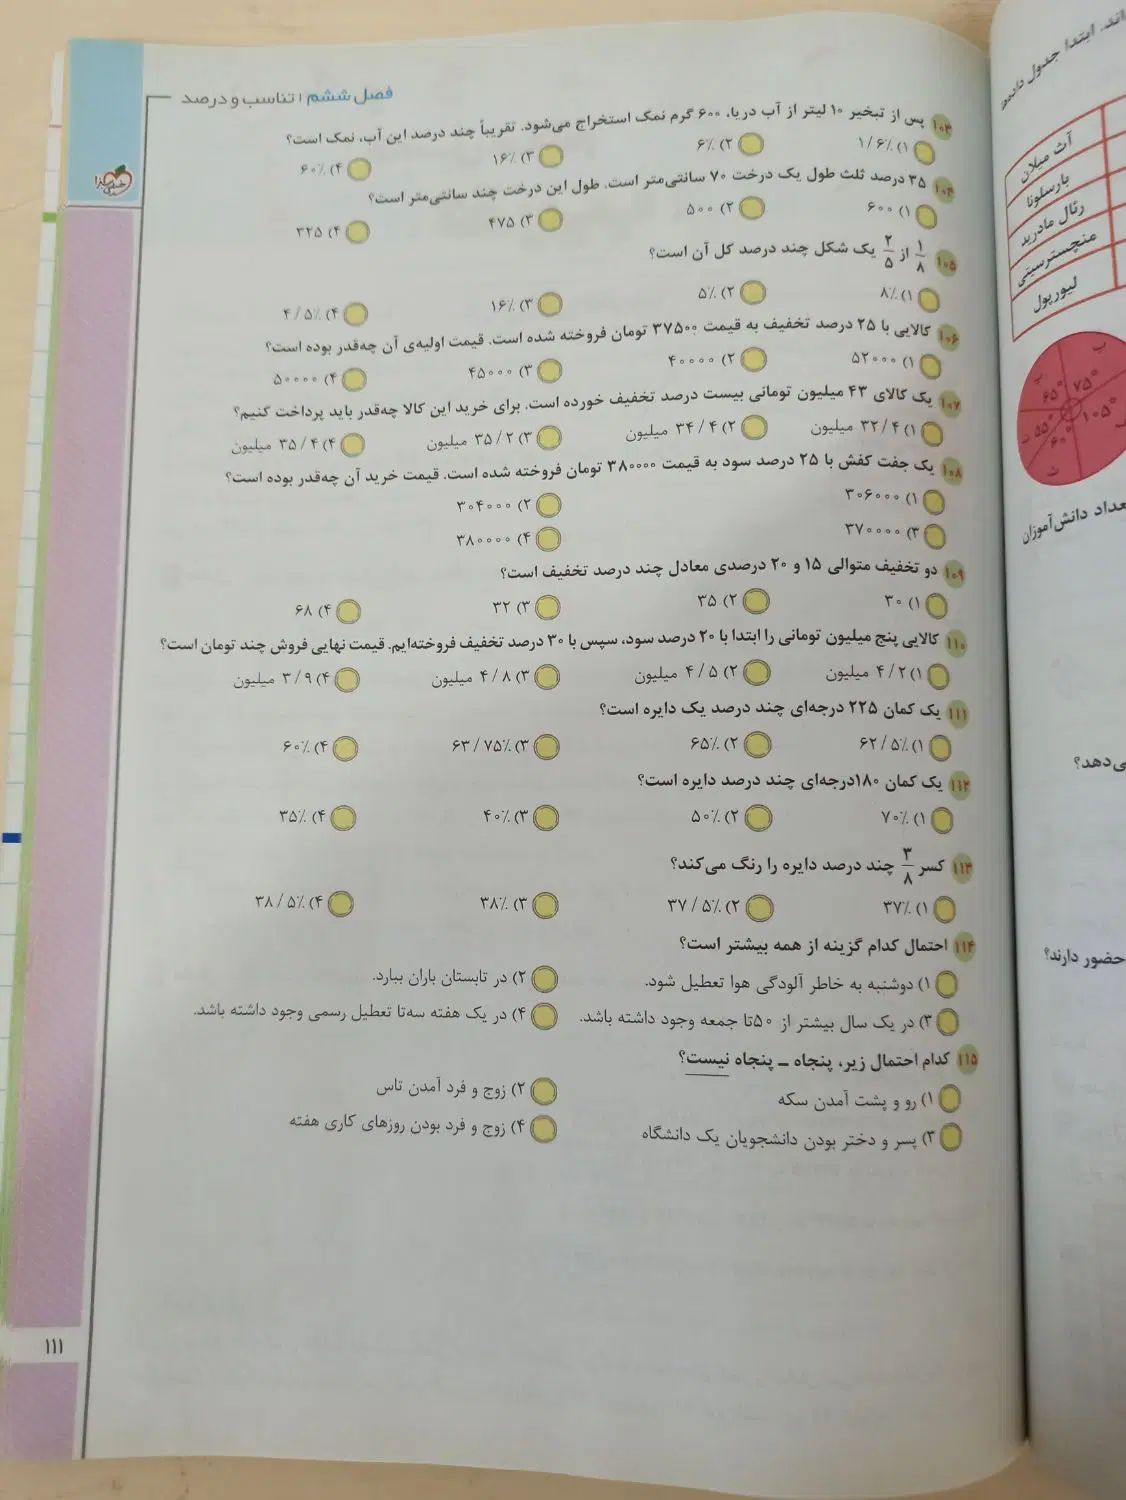 فصل ششم | تناسب و درصد
۱۰۳ پس از تبخیر ۱۰ لیتر از آب دریا، ۶۰۰ گرم نمک استخراج می‌شود. تقریباً چند درصد این آب، نمک است؟
۱) ۱/۶٪ ۲) ۶٪ ۳) ۱۶٪ ۴) ۶۰٪
۱۰۴ ۳۵ درصد ثلث طول یک درخت ۷۰ سانتی‌متر است. طول این درخت چند سانتی‌متر است؟
۱) ۶۰۰ ۲) ۵۰۰ ۳) ۴۷۵ ۴) ۳۲۵
۱۰۵ ۱/۸ از ۲/۵ یک شکل چند درصد کل آن است؟
۱) ۸٪ ۲) ۵٪ ۳) ۱۶٪ ۴) ۴/۵٪
۱۰۶ کالایی با ۲۵ درصد تخفیف به قیمت ۳۷۵۰۰ تومان فروخته شده است. قیمت اولیه‌ی آن چه‌قدر بوده است؟
۱) ۵۲۰۰۰ ۲) ۴۰۰۰۰ ۳) ۴۵۰۰۰ ۴) ۵۰۰۰۰
۱۰۷ یک کالای ۴۳ میلیون تومانی بیست درصد تخفیف خورده است. برای خرید این کالا چه‌قدر باید پرداخت کنیم؟
۱) ۳۲/۴ میلیون ۲) ۳۴/۴ میلیون ۳) ۳۵/۲ میلیون ۴) ۳۵/۴ میلیون
۱۰۸ یک جفت کفش با ۲۵ درصد سود به قیمت ۳۸۰۰۰۰ تومان فروخته شده است. قیمت خرید آن چه‌قدر بوده است؟
۱) ۳۰۶۰۰۰ ۲) ۳۰۴۰۰۰
۳) ۳۷۰۰۰۰ ۴) ۳۸۰۰۰۰
۱۰۹ دو تخفیف متوالی ۱۵ و ۲۰ درصدی معادل چند درصد تخفیف است؟
۱) ۳۰ ۲) ۳۵ ۳) ۳۲ ۴) ۶۸
۱۱۰ کالایی پنج میلیون تومانی را ابتدا با ۲۰ درصد سود، سپس با ۳۰ درصد تخفیف فروخته‌ایم. قیمت نهایی فروش چند تومان است؟
۱) ۴/۲ میلیون ۲) ۴/۵ میلیون ۳) ۴/۸ میلیون ۴) ۳/۹ میلیون
۱۱۱ یک کمان ۲۲۵ درجه‌ای چند درصد یک دایره است؟
۱) ۶۲/۵٪ ۲) ۶۵٪ ۳) ۶۳/۷۵٪ ۴) ۶۰٪
۱۱۲ یک کمان ۱۸۰درجه‌ای چند درصد دایره است؟
۱) ۷۰٪ ۲) ۵۰٪ ۳) ۴۰٪ ۴) ۳۵٪
۱۱۳ کسر ۳/۸ چند درصد دایره را رنگ می‌کند؟
۱) ۳۷٪ ۲) ۳۷/۵٪ ۳) ۳۸٪ ۴) ۳۸/۵٪
۱۱۴ احتمال کدام گزینه از همه بیشتر است؟
۱) دوشنبه به خاطر آلودگی هوا تعطیل شود. ۲) در تابستان باران ببارد.
۳) در یک سال بیشتر از ۵۰تا جمعه وجود داشته باشد. ۴) در یک هفته سه‌تا تعطیل رسمی وجود داشته باشد.
۱۱۵ کدام احتمال زیر، پنجاه ـ پنجاه نیست؟
۱) رو و پشت آمدن سکه ۲) زوج و فرد آمدن تاس
۳) پسر و دختر بودن دانشجویان یک دانشگاه ۴) زوج و فرد بودن روزهای کاری هفته
۱۱۱
ابتدا جدول
آث میلان
بارسلونا
رئال مادرید
منچسترسیتی
لیورپول
۷۵° ۶۵°
۱۰۵° ۵۵° ۶۰°
دانش‌آموزان
حضور دارند؟